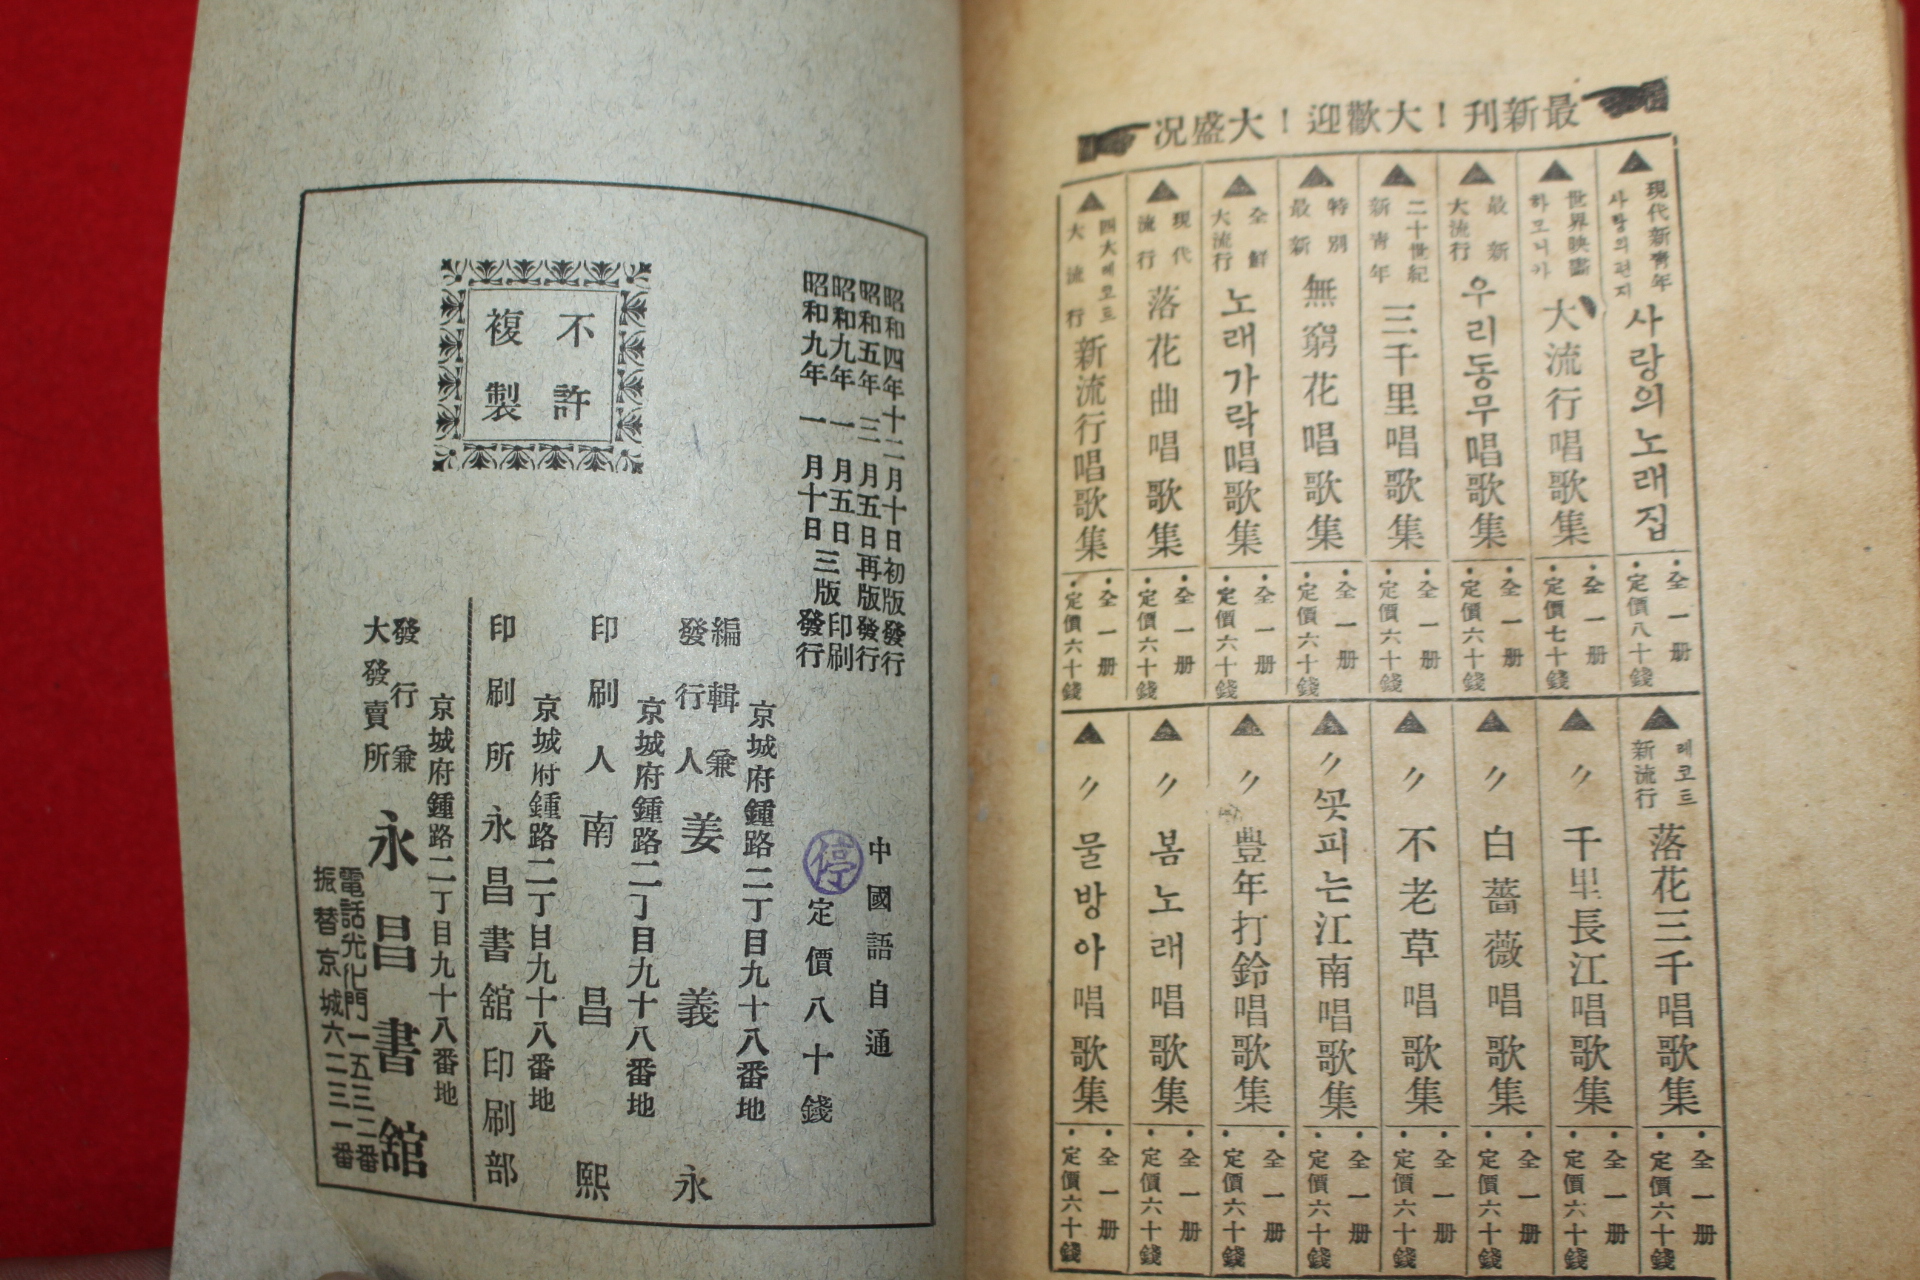 最新刊！大歡迎！大盛况
▲現代新靑年 사랑의편지 사랑의노래집 ・全一册 ・定價八十錢
▲世界映畵 하모니카 大流行唱歌集 ・全一册 ・定價七十錢
▲最新 大流行 우리동무唱歌集 ・全一册 ・定價六十錢
▲二十世紀 新靑年 三千里唱歌集 ・全一册 ・定價六十錢
▲特別 最新 無窮花唱歌集 ・全一册 ・定價六十錢
▲全鮮 大流行 노래가락唱歌集 ・全一册 ・定價六十錢
▲現代 流行 落花曲唱歌集 ・全一册 ・定價六十錢
▲四大레코트 大流行 新流行唱歌集 ・全一册 ・定價六十錢
▲레코트 新流行 落花三千唱歌集 ・全一册 ・定價六十錢
▲〃 千里長江唱歌集 ・全一册 ・定價六十錢
▲〃 白薔薇唱歌集 ・全一册 ・定價六十錢
▲〃 不老草唱歌集 ・全一册 ・定價六十錢
▲〃 피는江南唱歌集 ・全一册 ・定價六十錢
▲〃 豐年打鈴唱歌集 ・全一册 ・定價六十錢
▲〃 봄노래唱歌集 ・全一册 ・定價六十錢
▲〃 물방아唱歌集 ・全一册 ・定價六十錢
昭和四年十二月十日初版發行
昭和五年三月五日再版發行
昭和九年一月五日三版印刷
昭和九年一月十日三版發行
不許
複製
中國語自通
停
定價八十錢
京城府鍾路二丁目九十八番地
編輯兼
發行人 姜義永
京城府鍾路二丁目九十八番地
印刷人 南昌熙
京城府鍾路二丁目九十八番地
印刷所 永昌書舘印刷部
京城府鍾路二丁目九十八番地
發行兼
大發賣所 永昌書舘
電話光化門一五三二番
振替京城六二三一番